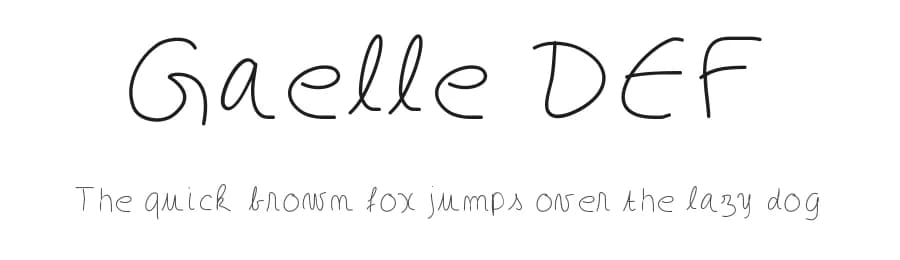 Gaelle DEF
The quick brown fox jumps over the lazy dog